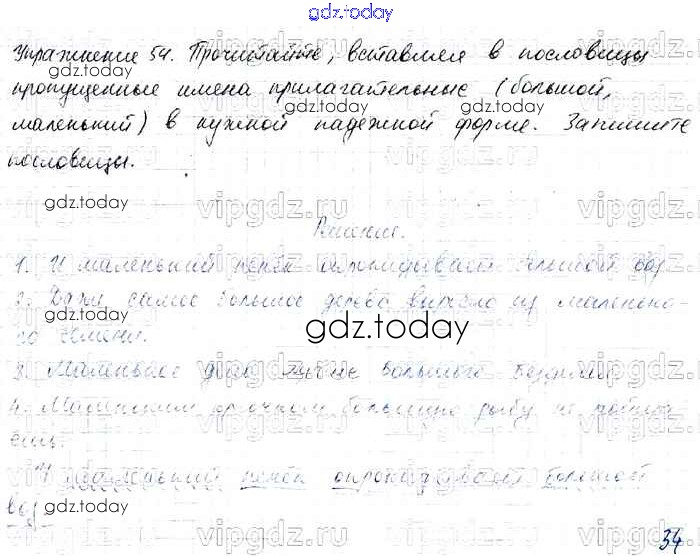 gdz.today
Упражнение 54. Прочитайте, вставляя в пословицы
gdz.today
пропущенные имена прилагательные (большой,
gdz.today
gdz.today
маленький) в нужной падежной форме. Запишите
пословицы.
gdz.today
vipgdz.ru
vipgdz.ru
vipgdz.ru
Решение.
1. И маленький пенёк опрокидывает большой воз.
2. Даже самое большое дерево выросло из маленько-
го семени.
gdz.today
3. Маленькое дело лучше большого безделья.
4. Маленьким крючком большую рыбу не поймаешь.
И маленький пенёк опрокидывает большой
воз.
gdz.today
gdz.today
34